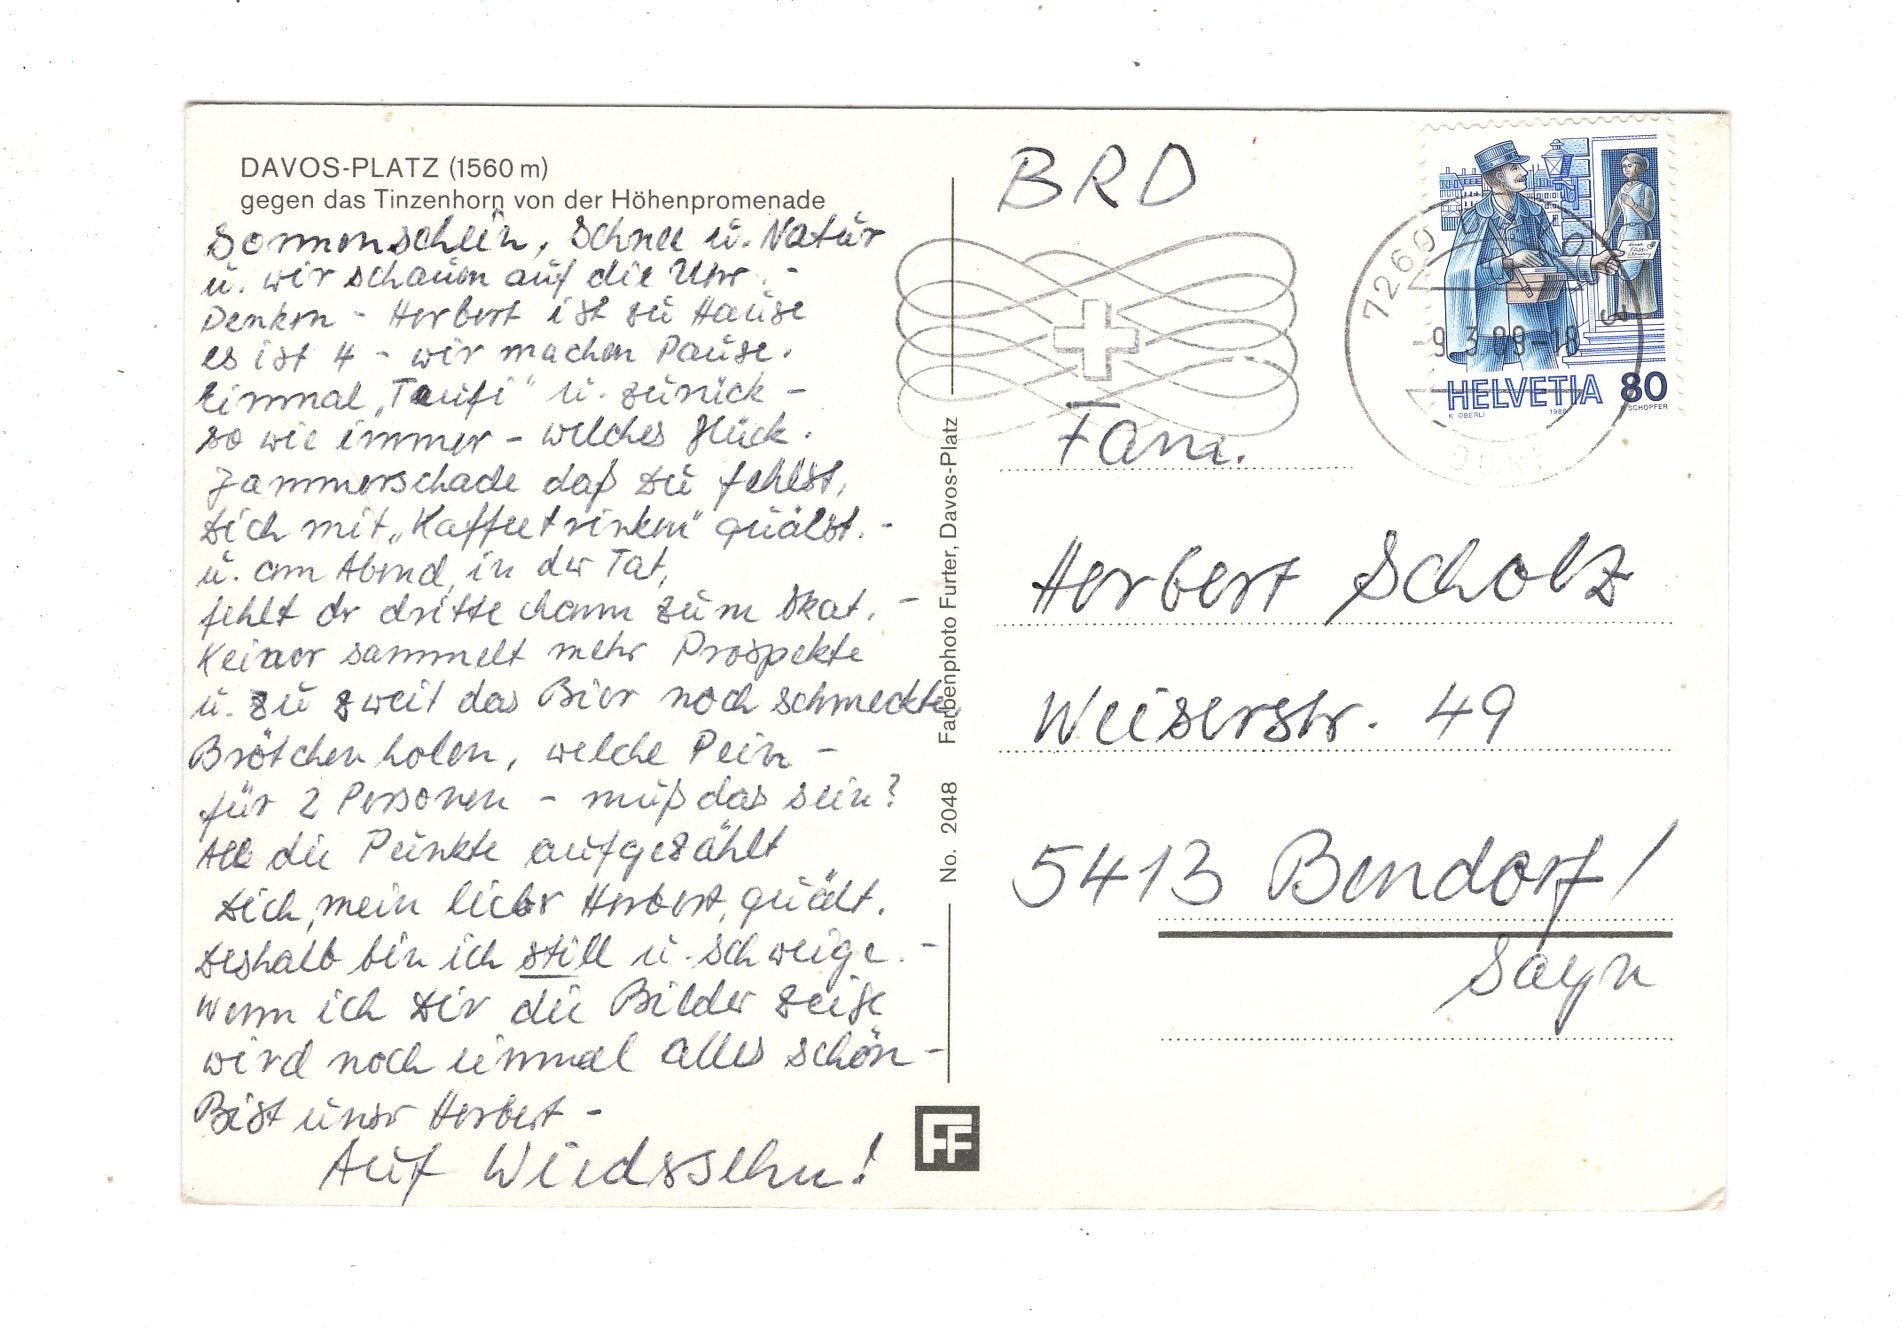 DAVOS-PLATZ (1560 m)
gegen das Tinzenhorn von der Höhenpromenade
Sonnenschein, Schnee u. Natur
u. wir schauen auf die Uhr. -
Denken - Herbert ist zu Hause
es ist 4 - wir machen Pause.
Einmal „Teufi" u. zurück -
so wie immer - welches Glück.
Jammerschade daß Du fehlst,
Dich mit „Kaffeetrinken" quälst. -
u. am Abend, in der Tat,
fehlt dr dritte dann zum Skat. -
Keiner sammelt mehr Prospekte
u. zu zweit das Bier noch schmeckte,
Brötchen holen, welche Pein -
für 2 Personen - muß das sein?
All die Punkte aufgezählt
Dich, mein lieber Herbert, quält.
Deshalb bin ich still u. schweige. -
Wenn ich Dir die Bilder zeige
wird noch einmal alles schön -
Bist unser Herbert -
Auf Wiedersehn!
No. 2048 Farbenphoto Furter, Davos-Platz
FF
BRD
7260 DAVOS
-9.3.88-18
HELVETIA 80
K. OBERLI 1986 SCHOPFER
Fam.
Herbert Scholz
Weiserstr. 49
5413 Bendorf/
Sayn